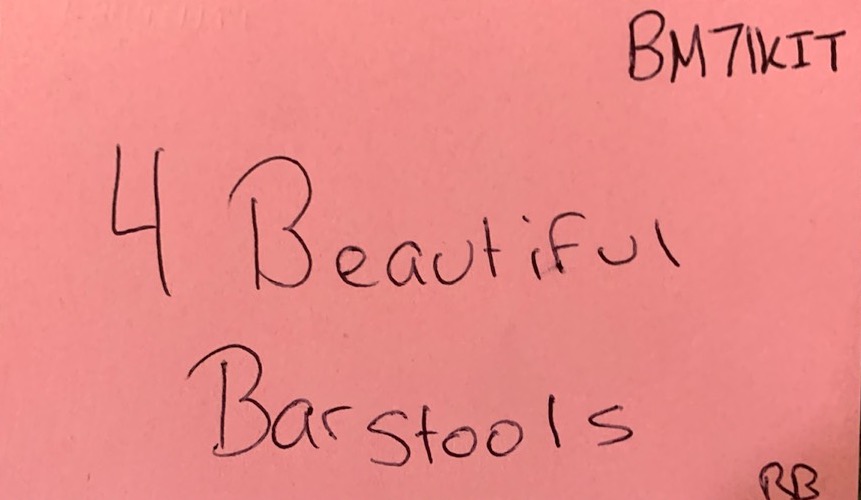 BM71KIT
4 Beautiful
Barstools
RB